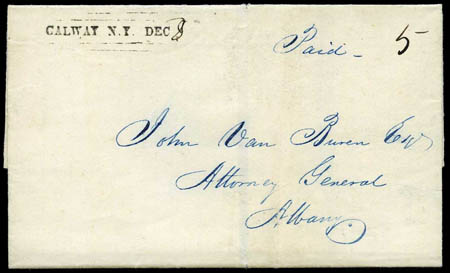 CALWAY N.Y. DEC 8
Paid - 5
John Van Buren Esqr
Attorney General
Albany